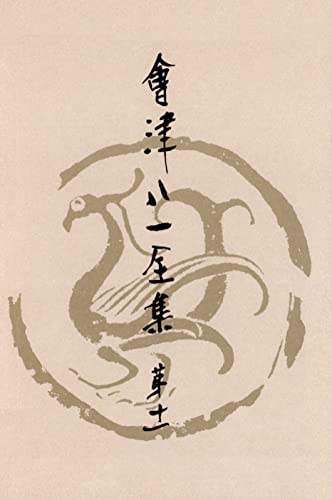 會津八一全集 第十一